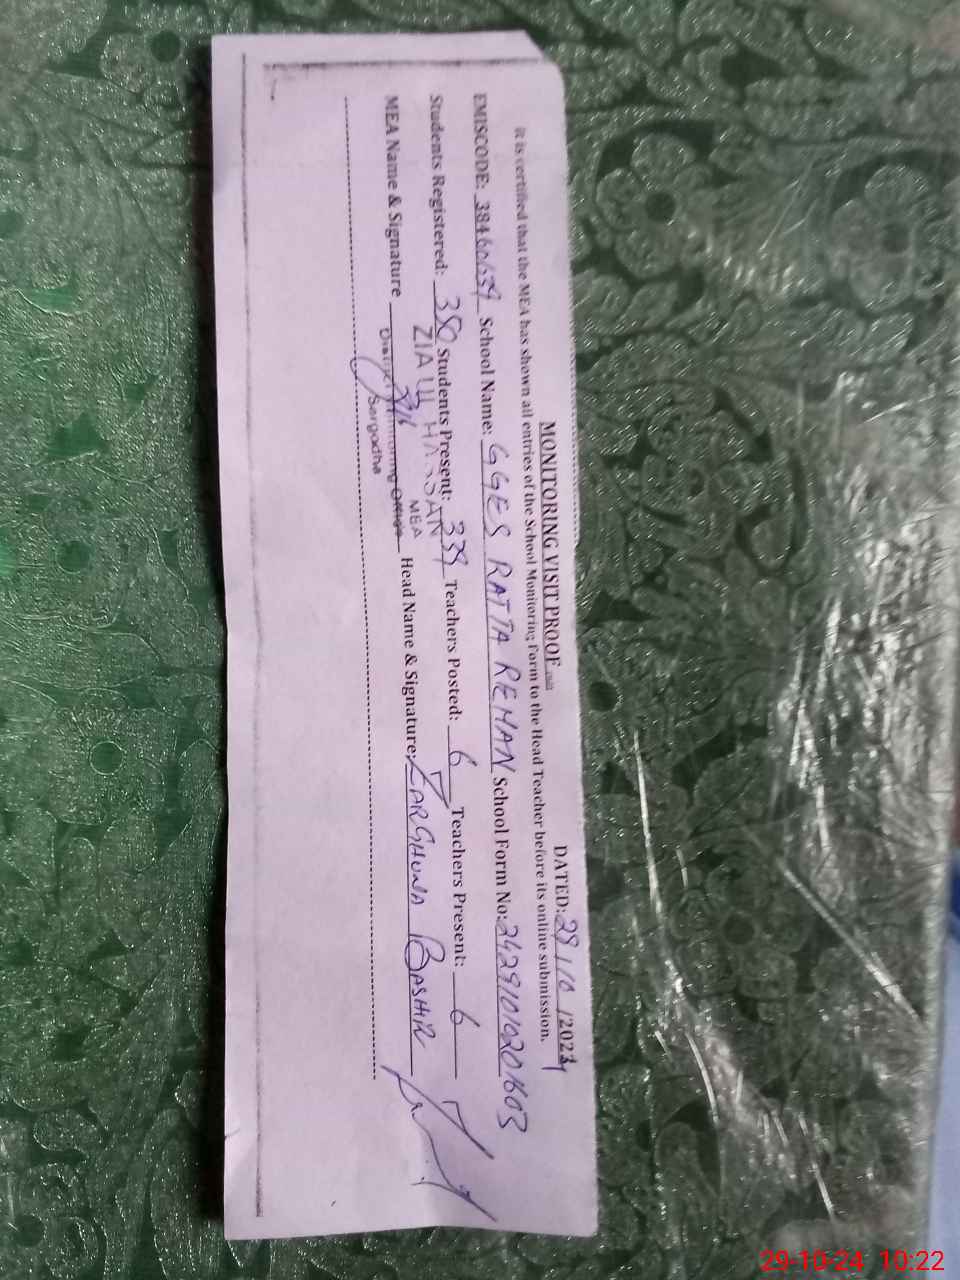 MONITORING VISIT PROOF DATED: 29/10/2024
It is certified that the MEA has shown all entries of the School Monitoring Form to the Head Teacher before its online submission.
EMISCODE: 38460639 School Name: GGES RATTA REHAN School Form No: 24291010201603
Students Registered: 350 Students Present: 339 Teachers Posted: 6 Teachers Present: 6
ZIA UL HASSAN
MEA
MEA Name & Signature Head Name & Signature: ZARGHUNA BASHIR
District Monitoring Office
Sargodha
29-10-24 10:22